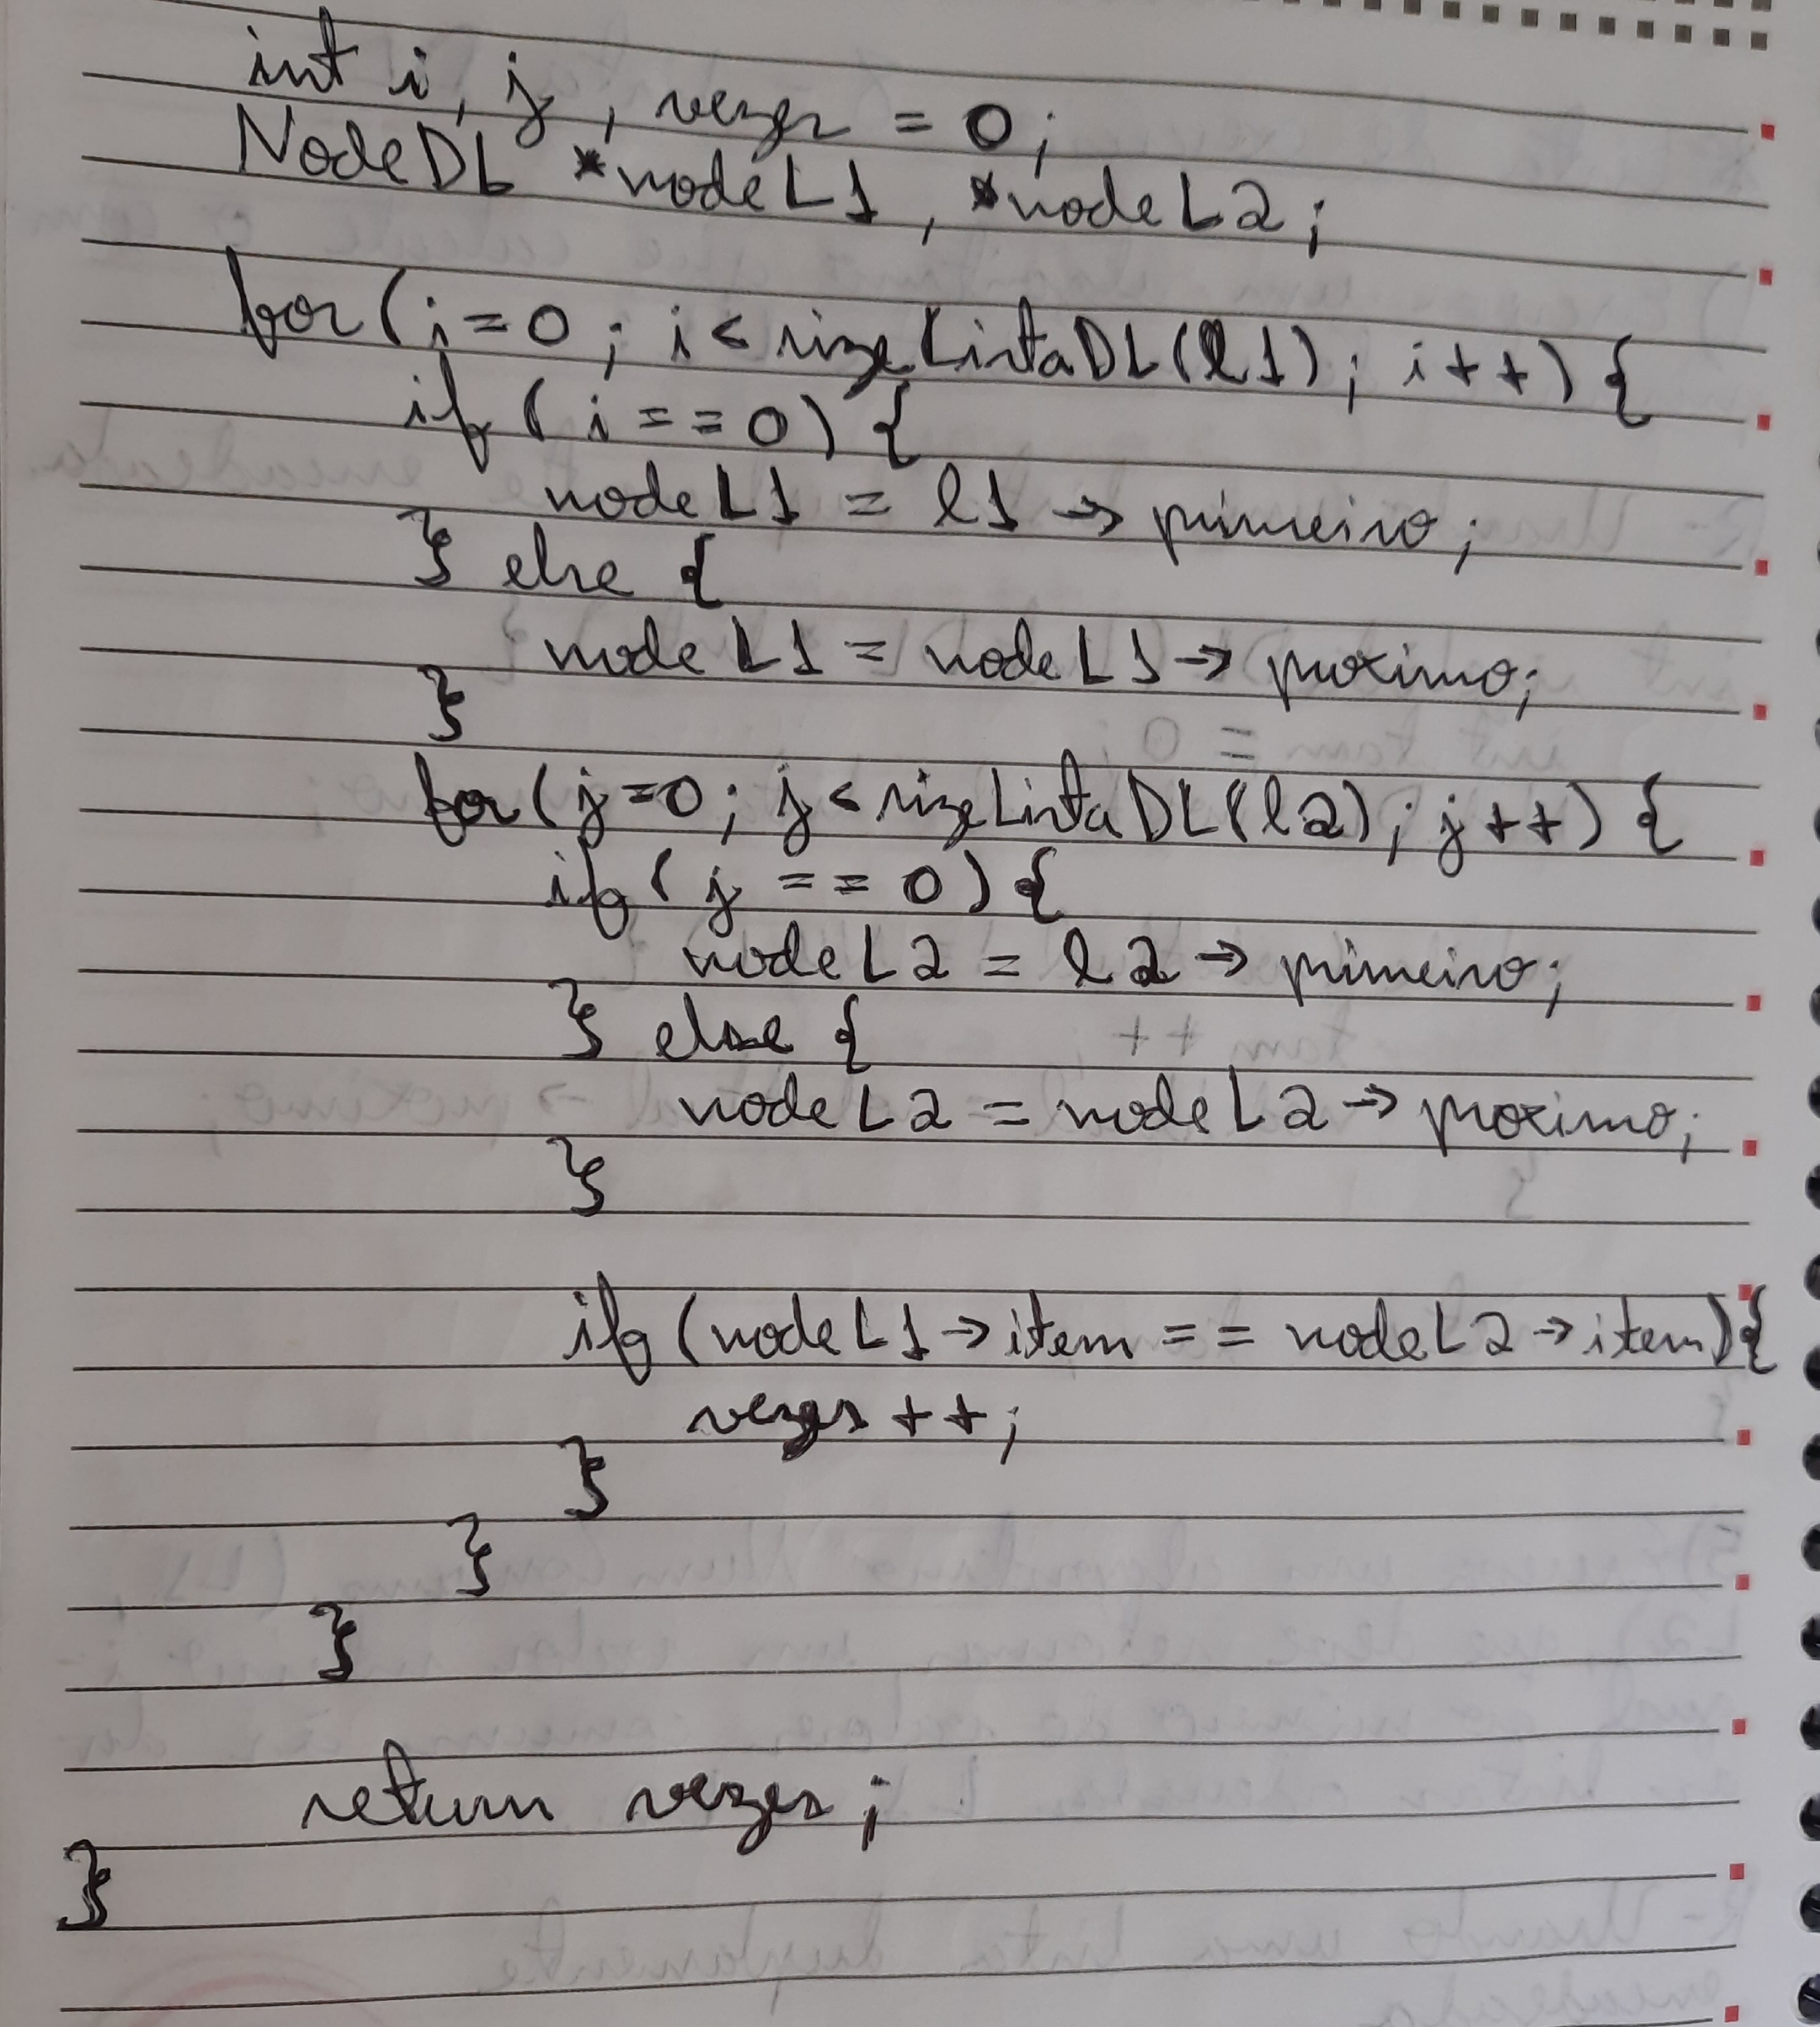 int i, j, vezes = 0;
NodeDL *nodeL1, *nodeL2;
for (i=0; i < sizeListaDL(l1); i++) {
if (i == 0) {
nodeL1 = l1 -> primeiro;
} else {
nodeL1 = nodeL1 -> proximo;
}
for (j=0; j < sizeListaDL(l2); j++) {
if (j == 0) {
nodeL2 = l2 -> primeiro;
} else {
nodeL2 = nodeL2 -> proximo;
}
if (nodeL1 -> item == nodeL2 -> item) {
vezes ++;
}
}
}
return vezes;
}